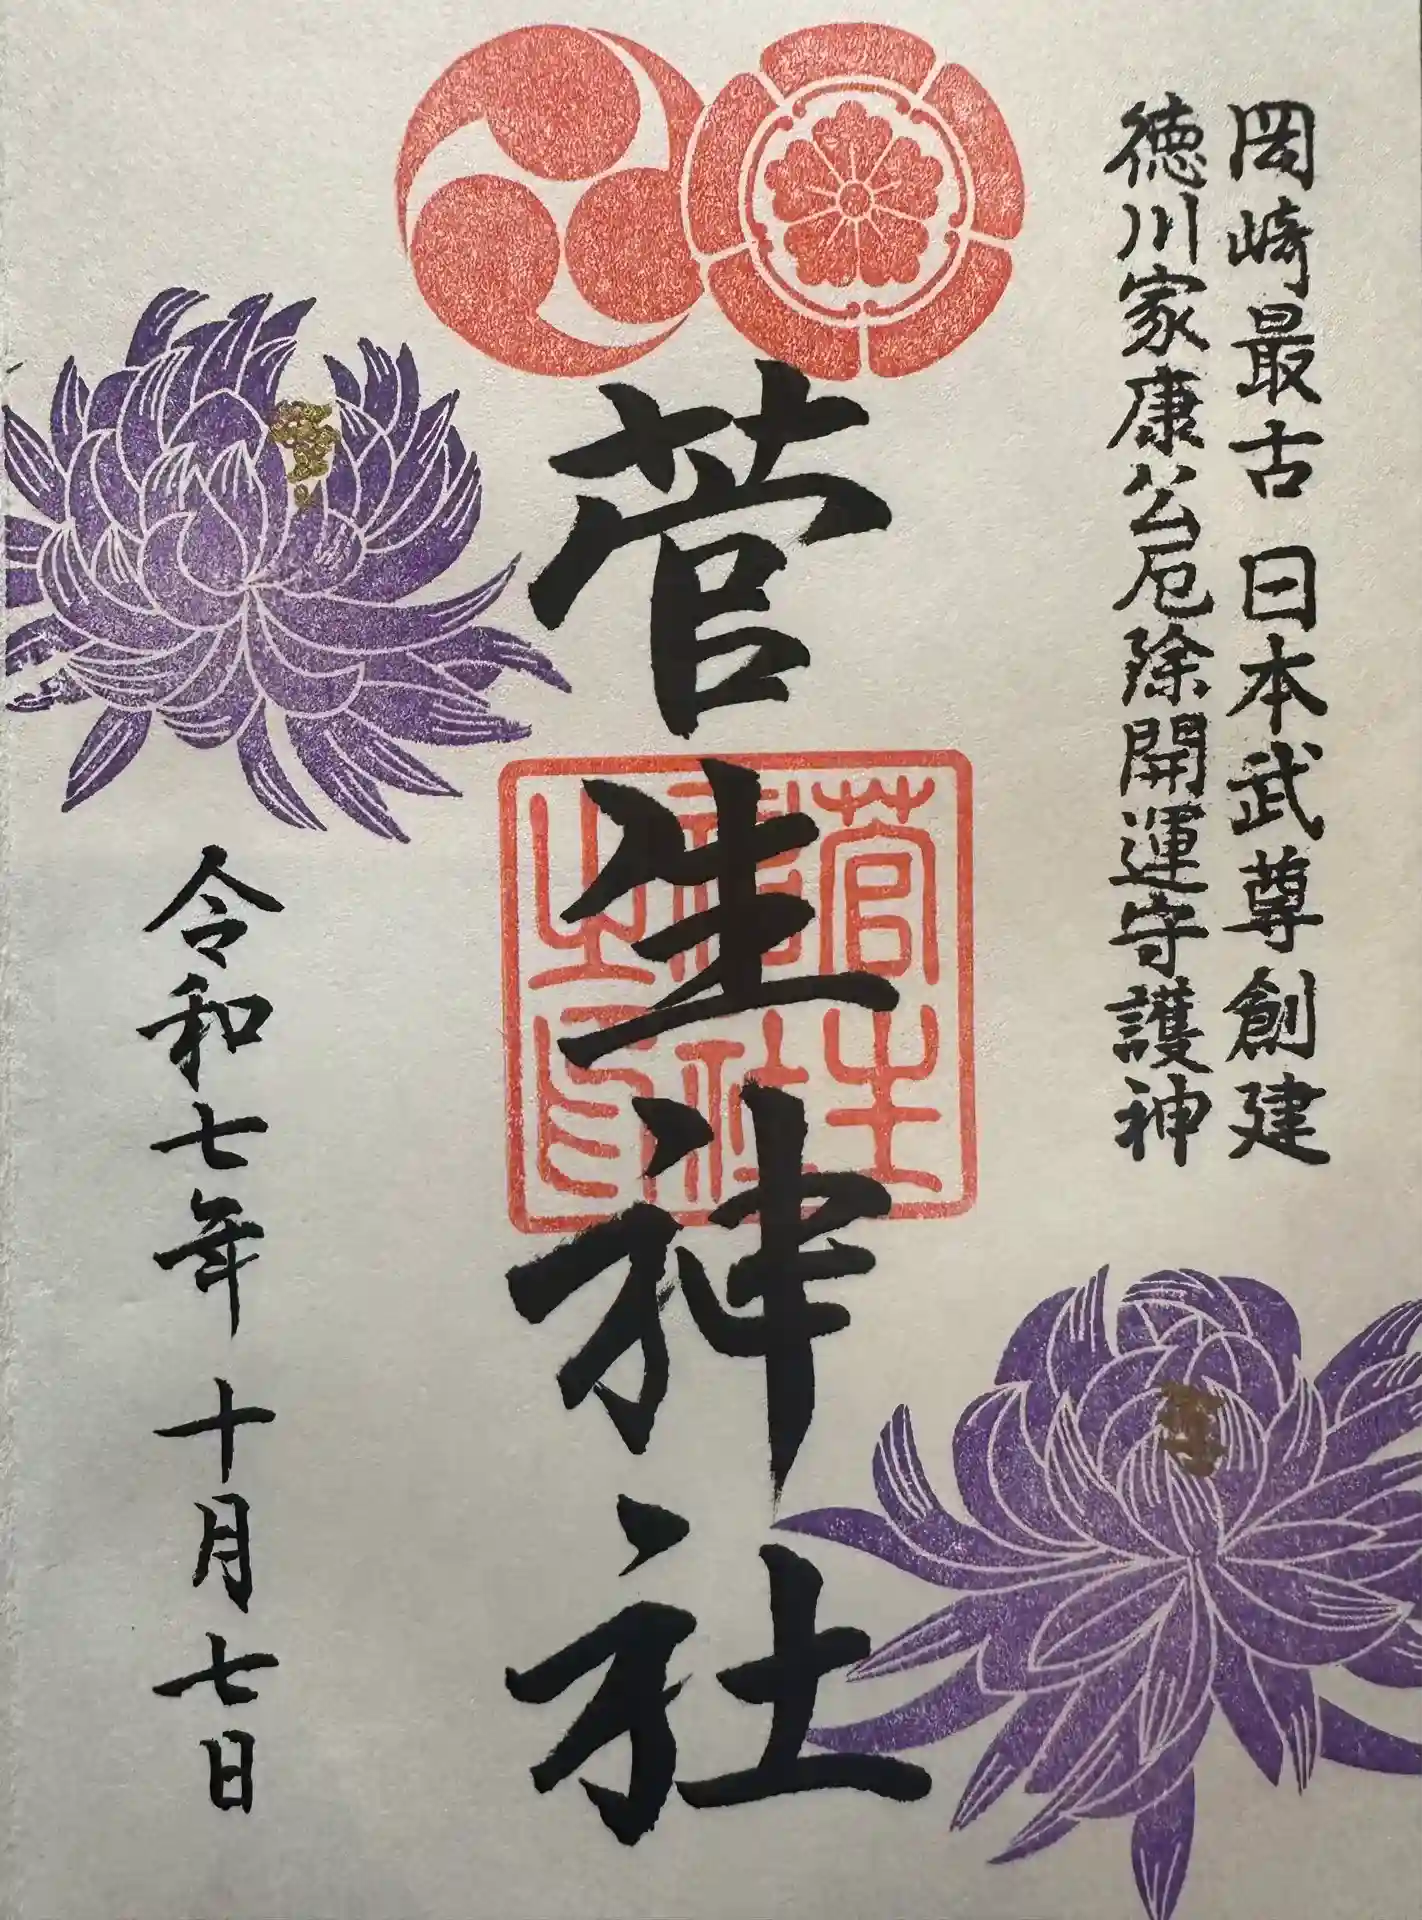 岡崎最古 日本武尊創建
徳川家康公厄除開運守護神
菅生神社
菅生神社之印
令和七年 十月七日